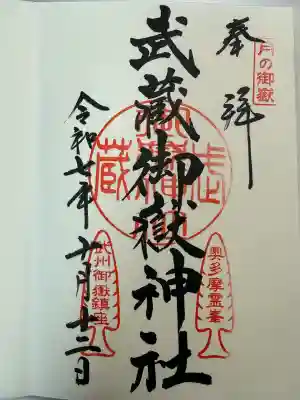 奉拝
月の御嶽
武蔵御嶽神社
奥多摩霊峯
武州御嶽鎮座
令和七年十月十二日